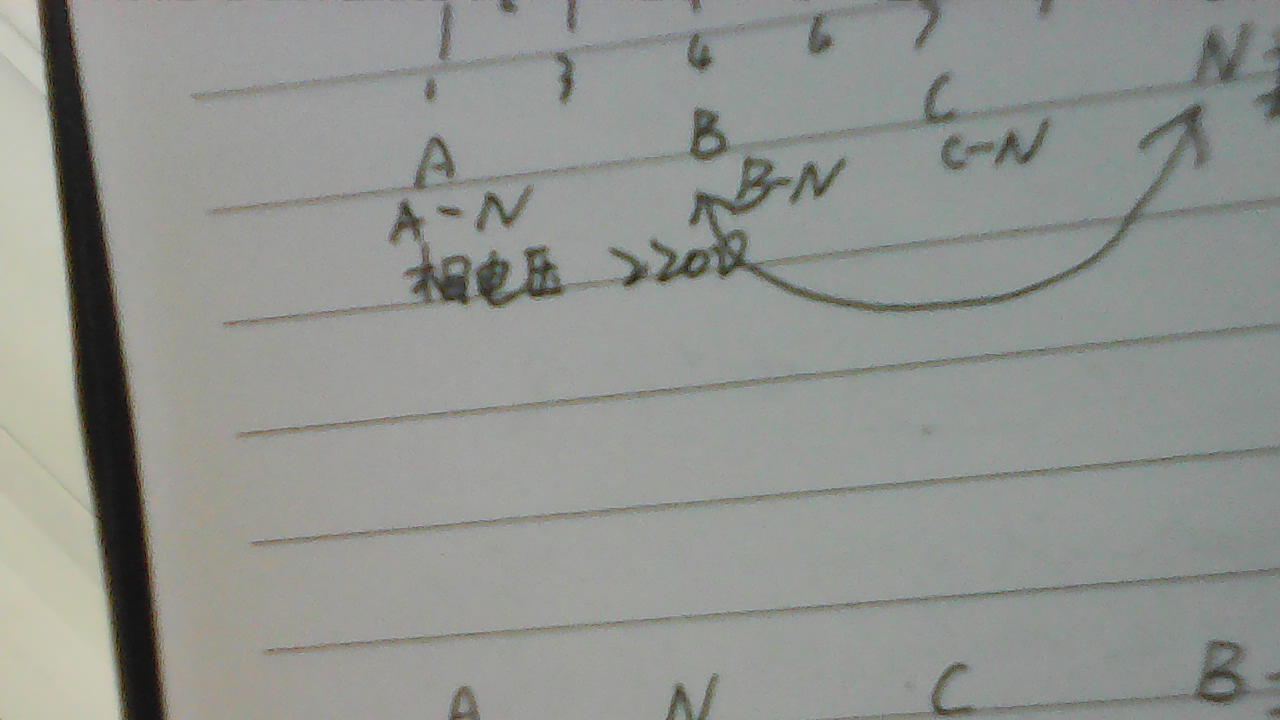 3 4 6 7
A B C N
A-N B-N C-N
相电压 220伏
A N C B